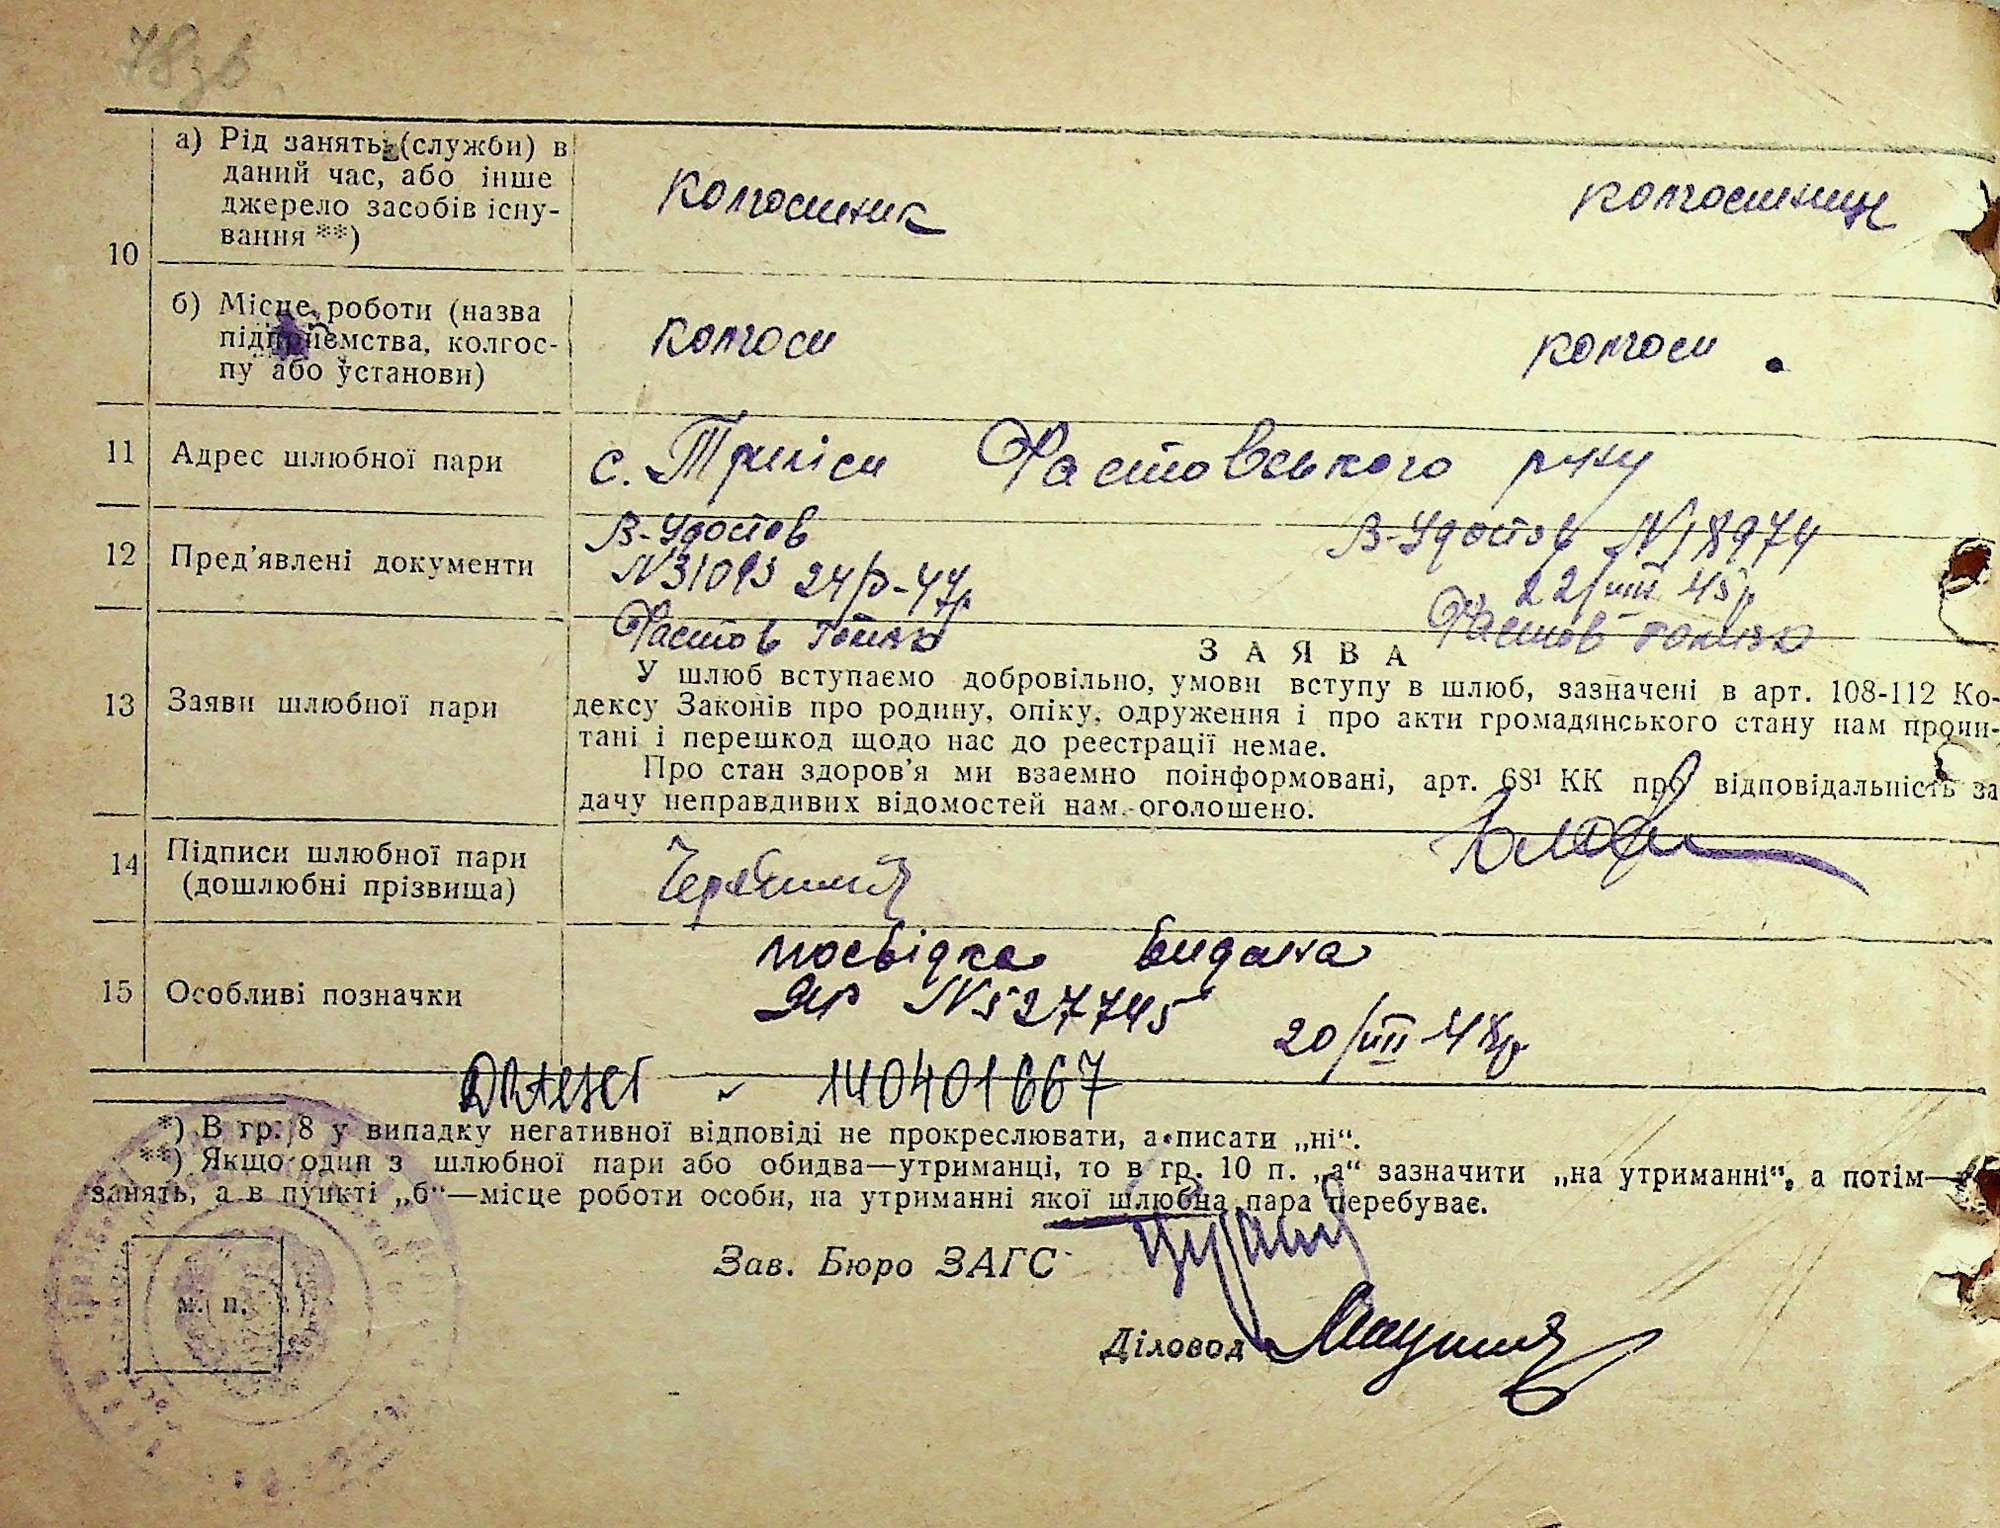 78зв
10
а) Рід занять (служби) в
даний час, або інше
джерело засобів існу-
вання **)
колгоспник
колгоспниця
б) Місце роботи (назва
підприємства, колгос-
пу або установи)
колгосп
колгосп
11
Адрес шлюбної пари
с. Триліси Фастовського р-ну
12
Пред'явлені документи
В-Удостов
В-Удостов N 18974
22/VIII 45р
Фастов
Фастов
13
Заяви шлюбної пари
ЗАЯВА
У шлюб вступаємо добровільно, умови вступу в шлюб, зазначені в арт. 108-112 Ко-
дексу Законів про родину, опіку, одруження і про акти громадянського стану нам прочи-
тані і перешкод щодо нас до реестрації немає.
Про стан здоров'я ми взаємно поінформовані, арт. 68¹ КК про відповідальність за
дачу неправдивих відомостей нам оголошено.
14
Підписи шлюбної пари
(дошлюбні прізвища)
15
Особливі позначки
посвідка видана
ЯР N 527745
20/VIII 48р
140401667
*) В гр. 8 у випадку негативної відповіді не прокреслювати, а писати „ні“.
**) Якщо один з шлюбної пари або обидва—утриманці, то в гр. 10 п. „а“ зазначити „на утриманні“, а потім—
занять, а в пункті „б“—місце роботи особи, на утриманні якої шлюбна пара перебуває.
Зав. Бюро ЗАГС
м. п.
Діловод